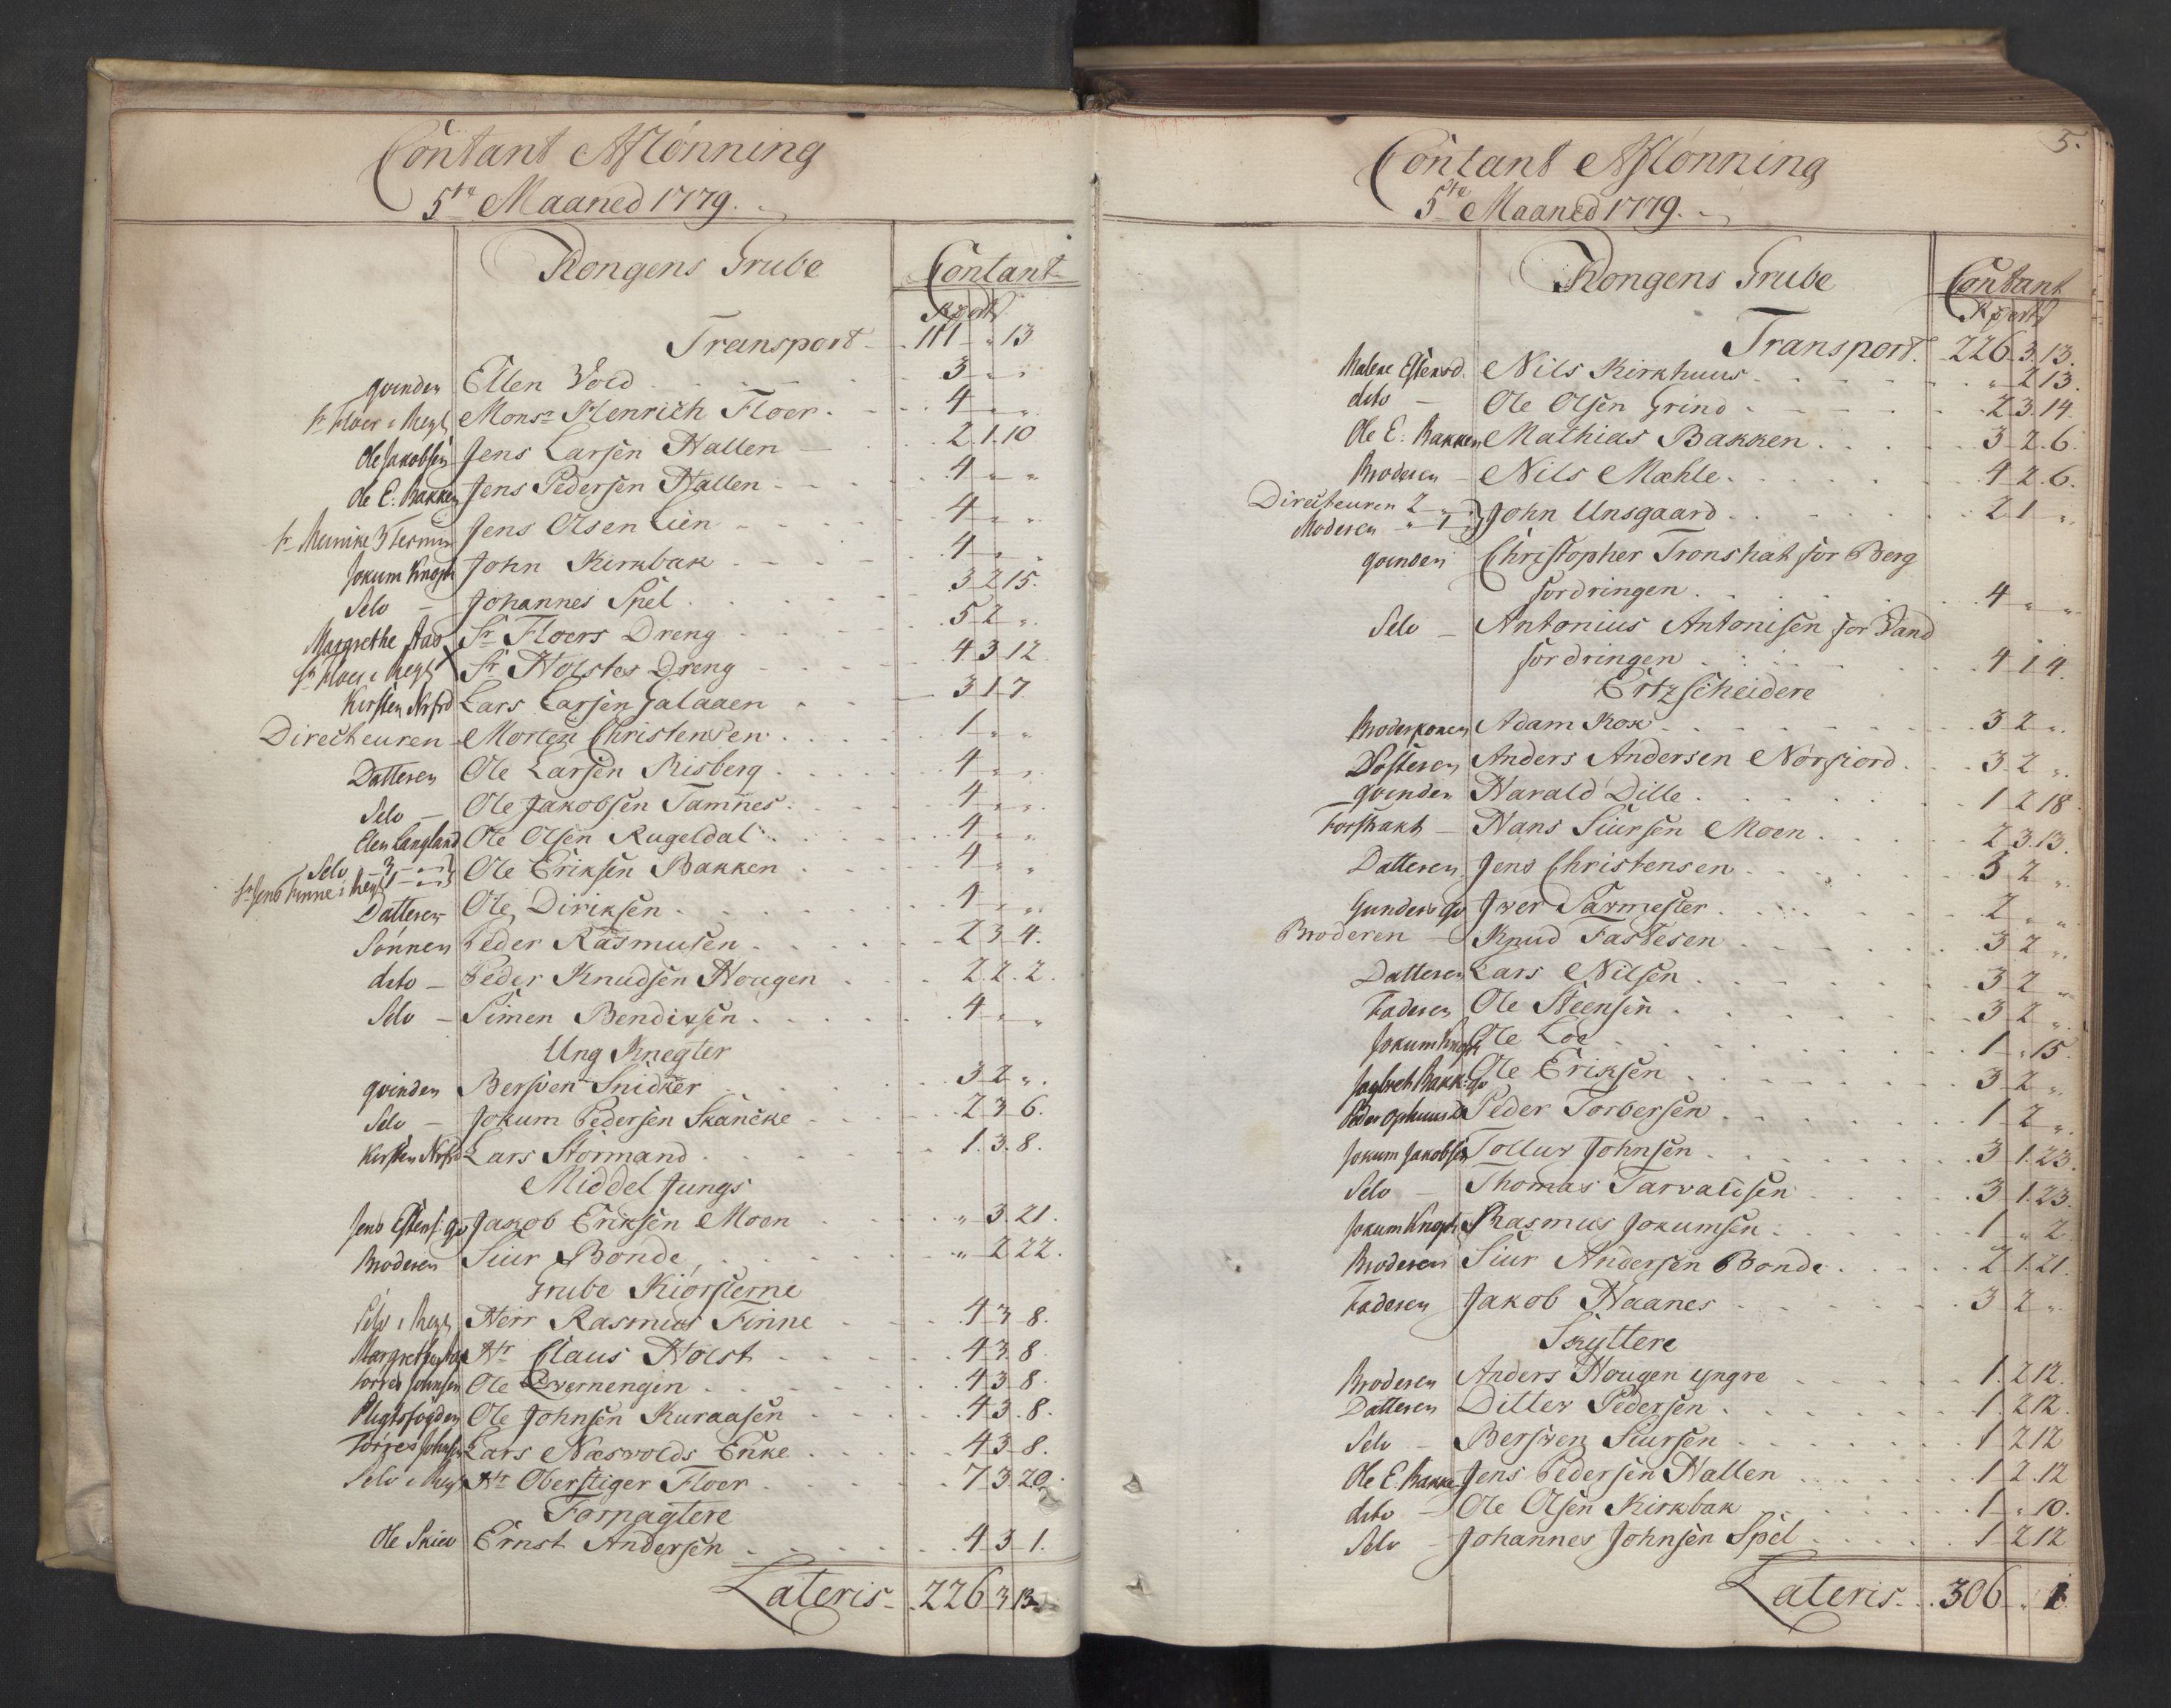 Contant Aflønning
5te Maaned 1779.
Kongens Grube Contant
Rd ort s
Transport 111 " 13
qvinden Ellen Vold 3 " "
Sr Floer i Regl Monsr Henrich Floer 4 " "
Ole Jakobsen Jens Larsen Hallen 2 1 10
Ole E: Bakken Jens Pedersen Hallen 4 " "
Jens Olsen Lien 4 " "
Jokum Knoph John Kirkbak 4 " "
Selv Johannes Spel 3 2 15
Margrethe Aas Sr Floers Dreng 5 2 "
Sr Floer i Regl Sr Holstes Dreng 4 3 12
Kirsten Lars Larsen Galaaen 3 1 7
Directeuren Morten Christensen 1 " "
Datteren Ole Larsen Risberg 4 " "
Selv Ole Jakobsen Tamnes 4 " "
Elen Langland Ole Olsen Rugeldal 4 " "
Selv 3 " "
Sr Jens Finne i Regl 1 " " Ole Eriksen Bakken 4 " "
Datteren Ole Diriksen 4 " "
Sønnen Peder Rasmusen 2 3 4
dito Peder Knudsen Hougen 2 2 2
Selv Simen Bendixsen 4 " "
Ung Knegter
qvinden Bersven Snidker 3 2 "
Selv Jokum Pedersen Skancke 2 3 6
Kirsten Lars Stormand 1 3 8
Middel Jungs
Jens Estens: qv Jakob Eriksen Moen " 3 21
Broderen Siur Bonde " 2 22
Grube Kiørslerne
Selv i Regl Herr Rasmus Finne 4 3 8
Hr Claus Holst 4 3 8
Torres Johnsen Ole Qvernengen 4 3 8
Pligtsfogden Ole Johnsen Kuraasen 4 3 8
Torres Johnsen Lars Næsvolds Enke 4 3 8
Selv i Regl Hr Oberstiger Floer 7 3 20
Forpagtere
Ole Skiev Ernst Andersen 4 3 1
Lateris 226 3 13
5.
Contant Aflønning
5te Maaned 1779.
Kongens Grube Contant
Rd ort s
Transport 226 3 13
Malene Estensd. Nils Kirkhuus " 2 13
dito Ole Olsen Grind 2 3 14
Ole E: Bakken Mathias Bakken 3 2 6
Broderen Nils Mæhle 4 2 6
Directeuren 2 " "
Moderen " 1 " John Unsgaard 2 1 "
qvinden Christopher Tronshat for Berg
fordringen 4 " "
Selv Antonius Antonisen for Vand
fordringen 4 1 4
Ertzscheidere
Broderkonen Adam Kok 3 2 "
Søsteren Anders Andersen Nørfiord 3 2 "
qvinden Harald Dille 1 2 18
Forstrakt Hans Siursen Moen 2 3 13
Datteren Jens Christensen 3 2 "
Iver Sarmester 2 " "
Broderen Knud Fastesen 3 2 "
Datteren Lars Nilsen 3 2 "
Faderen Ole Steensen 3 2 "
Jokum Knoph Ole Loe 1 " 15
Ole Eriksen 3 2 "
Peder Torbersen 1 2 "
Jokum Jakobsen Tollur Johnsen 3 1 23
Selv Thomas Tarvaldsen 3 1 23
Jokum Knoph Rasmus Jokumsen 1 " 2
Broderen Siur Andersen Bonde 2 1 21
Faderen Jakob Haanes 3 2 "
Skyttere
Broderen Anders Hougen yngre 1 2 12
Datteren Ditlev Pedersen 1 2 12
Selv Bersven Siursen 1 2 12
Ole E: Bakke Jens Pedersen Hallen 1 2 12
dito Ole Olsen Kirkbak 1 " 10
Selv Johannes Johnsen Spel 1 2 12
Lateris 306 "